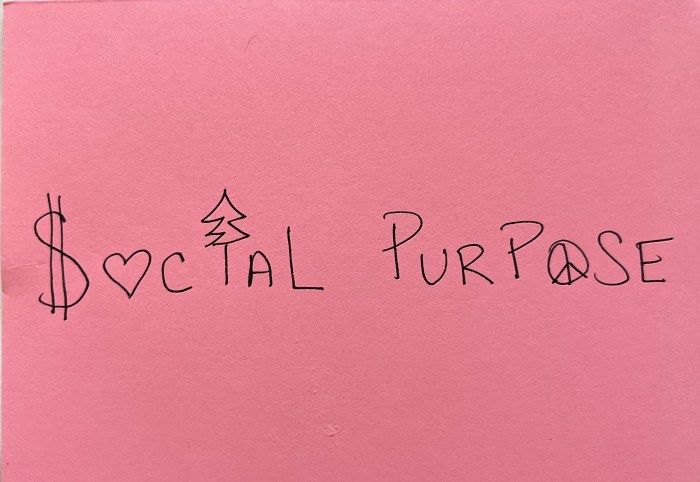 $OCIAL PURPOSE